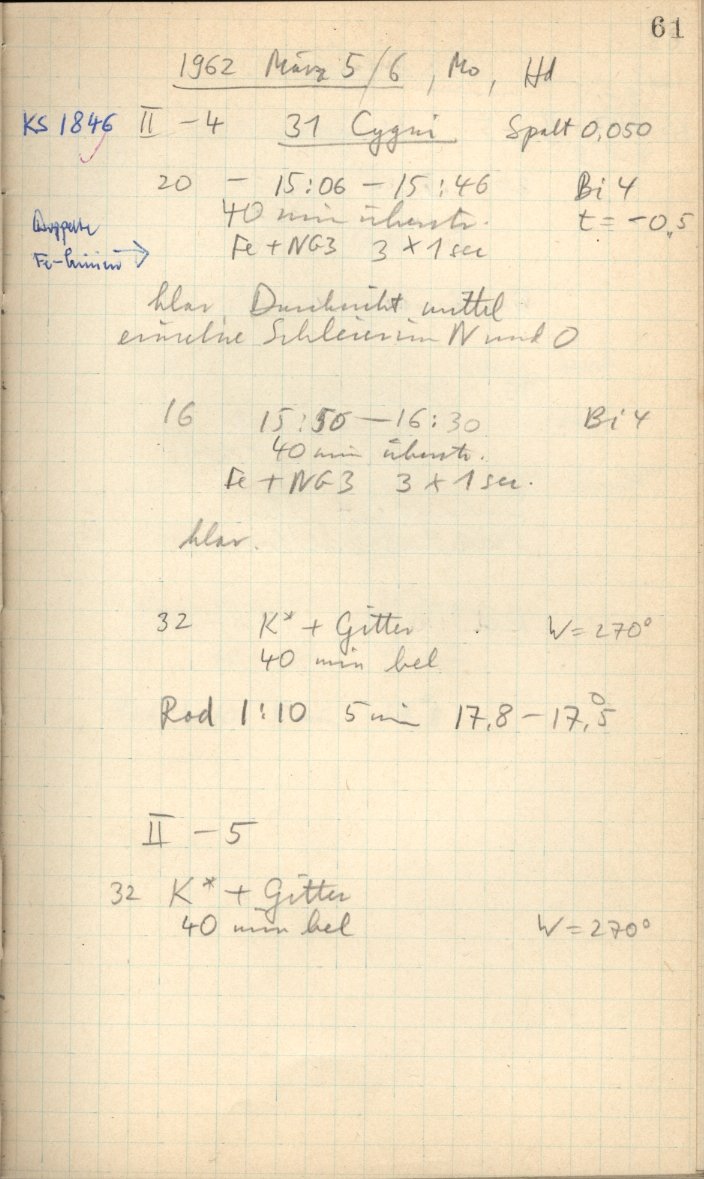 61
1962 März 5/6, Mo, Hd
KS 1846 II - 4 31 Cygni Spalt 0,050
20 - 15:06 - 15:46 Bi 4
40 min überstr. t = -0,5
Doppelte
Fe-Linien → Fe + NG3 3 x 1 sec
klar, Durchsicht mittel
einzelne Schleier im N und O
16 15:50 - 16:30 Bi 4
40 min überstr.
Fe + NG3 3 x 1 sec.
klar.
32 K* + Gitter W = 270°
40 min bel
Rod 1:10 5 min 17,8 - 17,5°
II - 5
32 K* + Gitter
40 min bel W = 270°